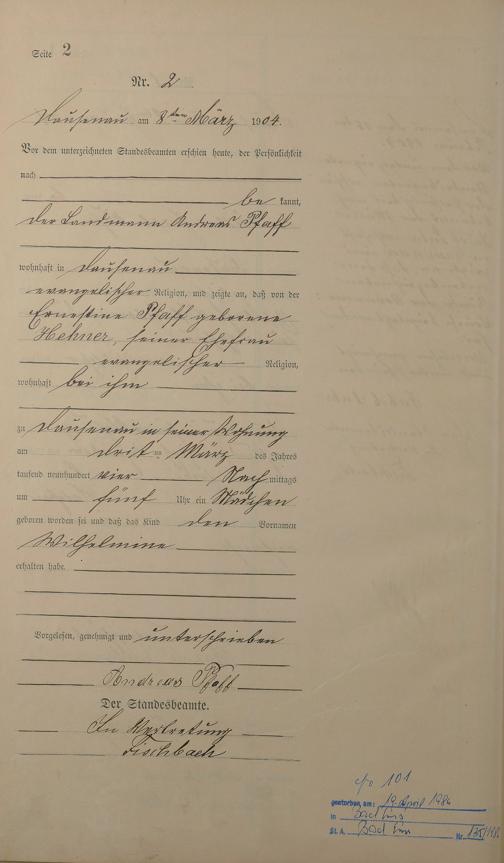 Seite 2
Nr. 2
Dausenau am 8ten März 1904.
Vor dem unterzeichneten Standesbeamten erschien heute, der Persönlichkeit
nach
be kannt,
der Landmann Andreas Pfaff
wohnhaft in Dausenau
evangelischer Religion, und zeigte an, daß von der
Ernestine Pfaff geborene
Hehner, seiner Ehefrau
evangelischer Religion,
wohnhaft bei ihm
zu Dausenau in seiner Wohnung
am März des Jahres
tausend neunhundert vier Nach mittags
um fünf Uhr ein Mädchen
geboren worden sei und daß das Kind den Vornamen
Wilhelmine
erhalten habe.
Vorgelesen, genehmigt und unterschrieben
Andreas Pfaff
Der Standesbeamte.
In Vertretung
Fischbach
101
gestorben am: 19. April 1986
in Bad Ems
St. A. Bad Ems Nr.